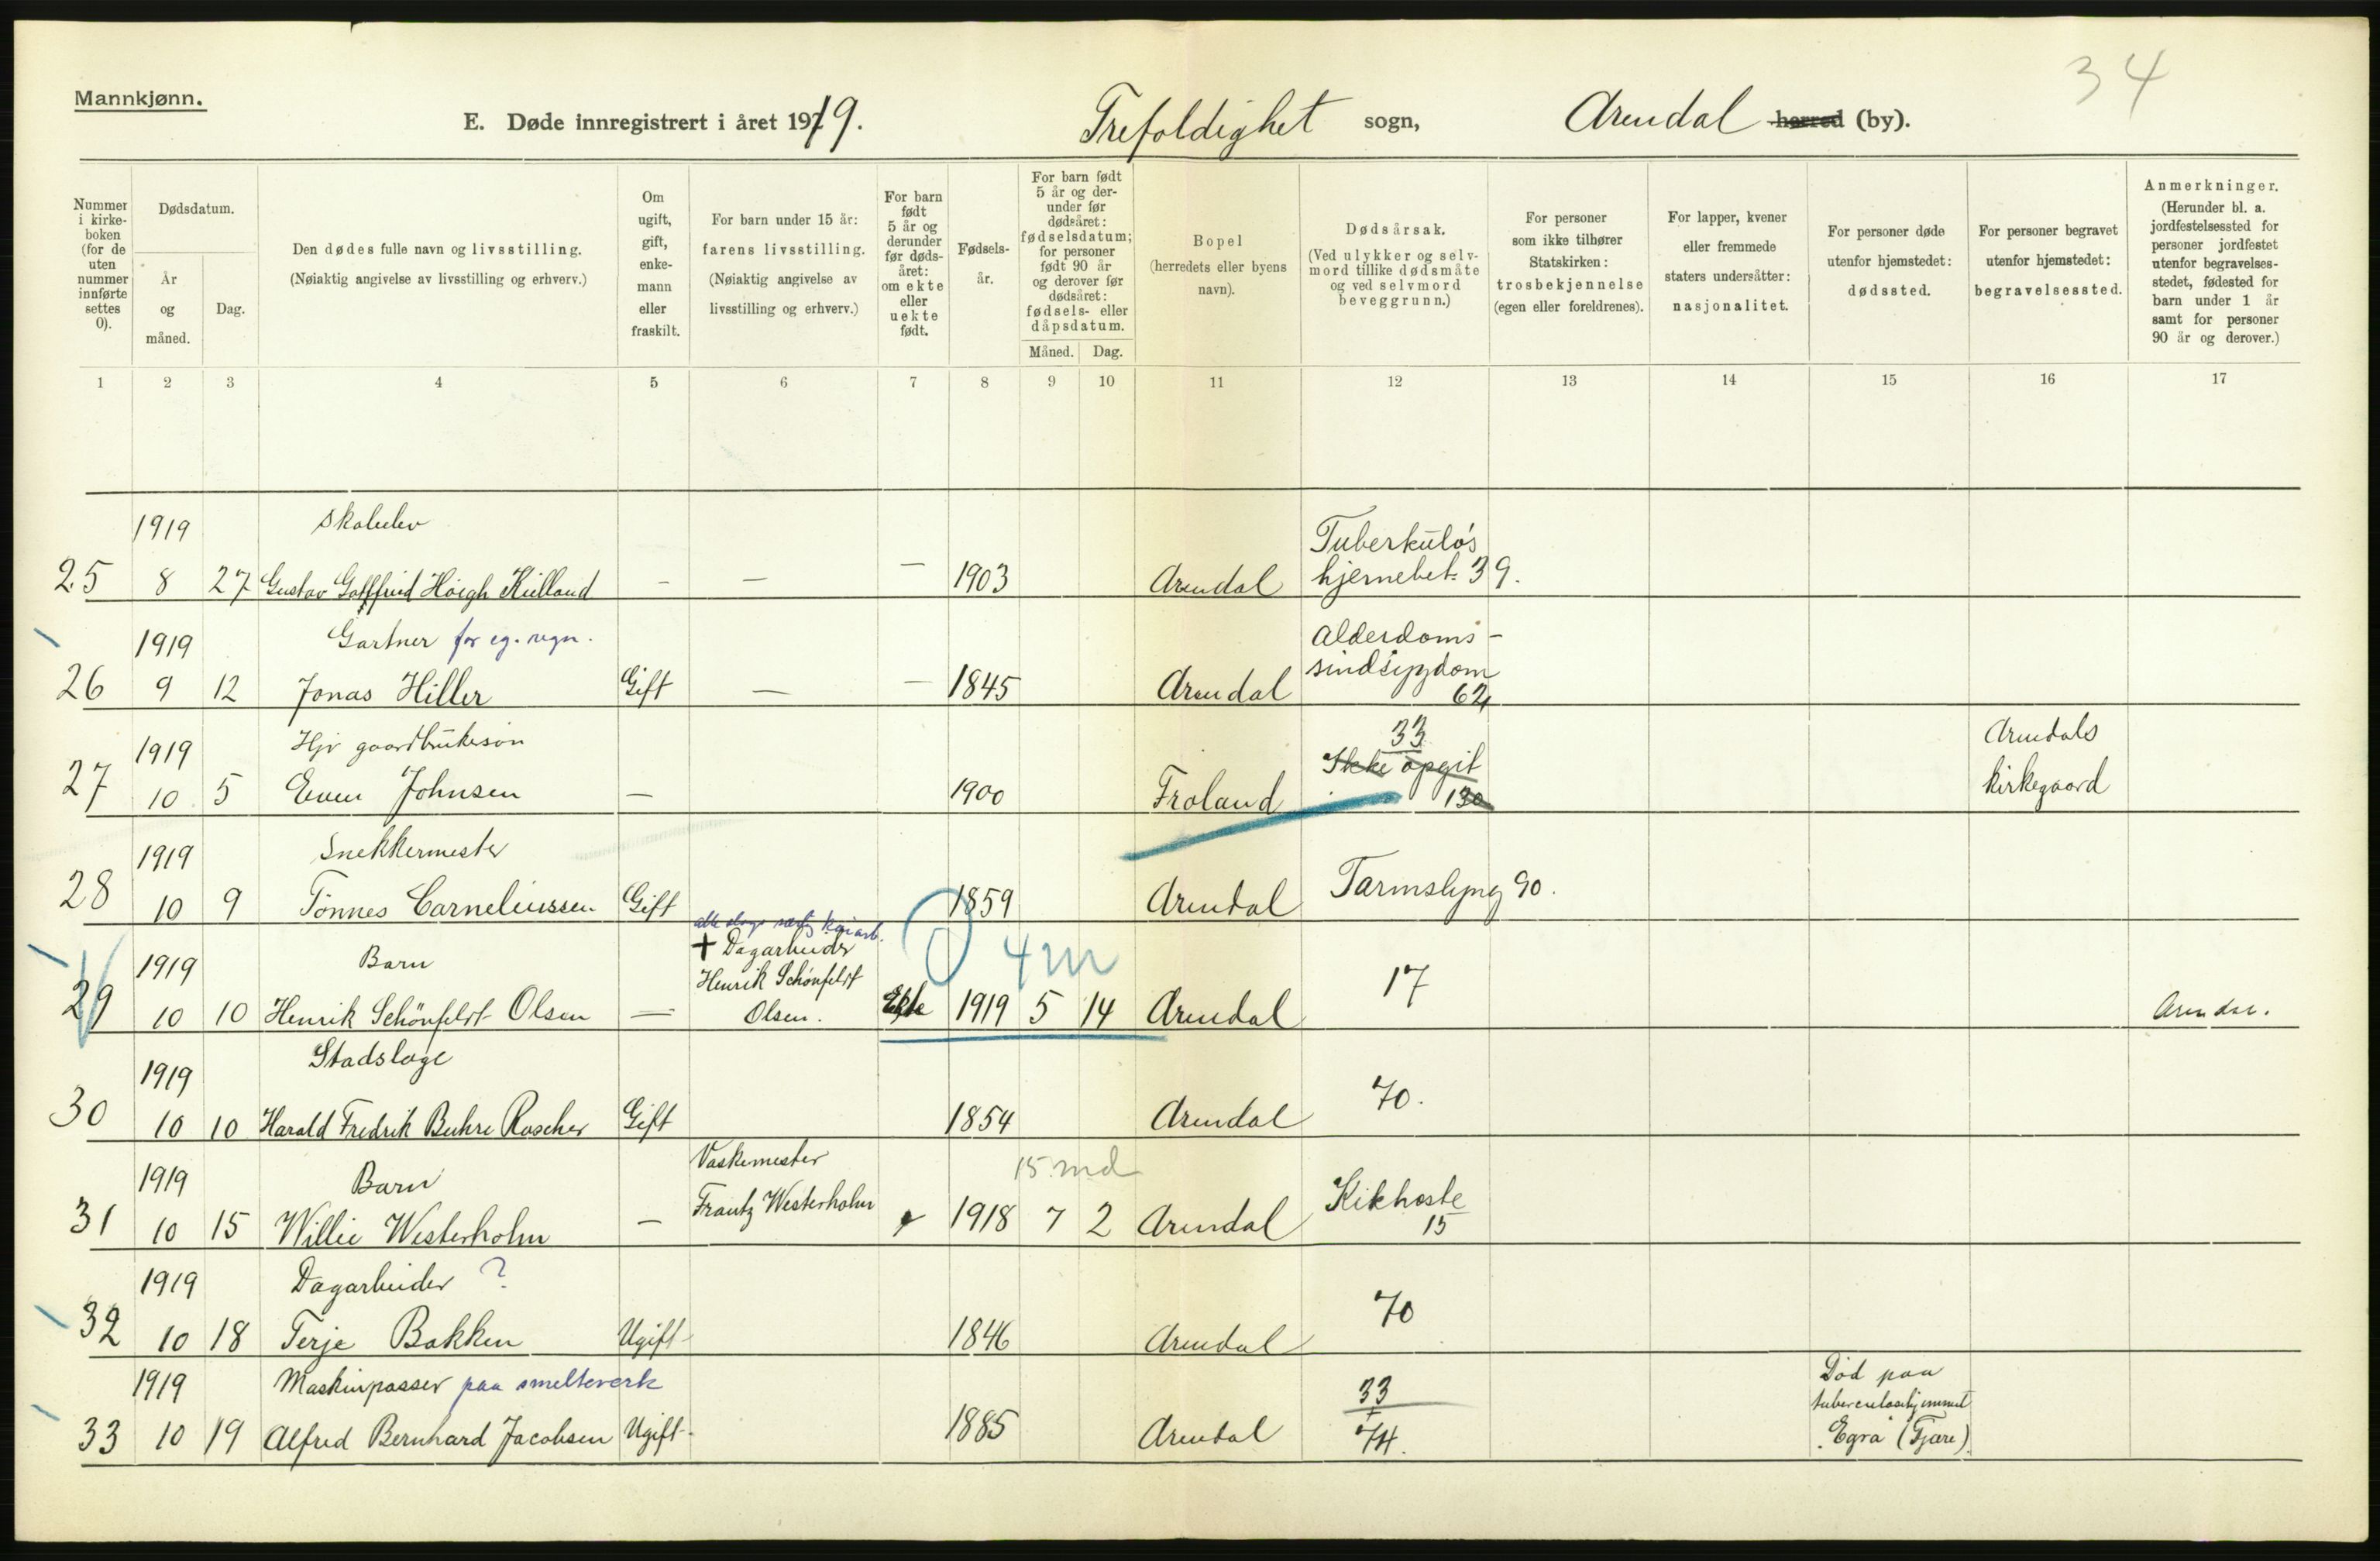 34
Mannkjønn.
E. Døde innregistrert i året 1919. Trefoldighet sogn, Arendal herred (by).
Nummer i kirkeboken (for de uten nummer innførte settes 0).
Dødsdatum.
År og måned.
Dag.
Den dødes fulle navn og livsstilling.
(Nøiaktig angivelse av livsstilling og erhverv.)
Om ugift, gift, enkemann eller fraskilt.
For barn under 15 år: farens livsstilling.
(Nøiaktig angivelse av livsstilling og erhverv.)
For barn født 5 år og derunder før dødsåret: om ekte eller uekte født.
Fødselsår.
For barn født 5 år og derunder før dødsåret: fødselsdatum; for personer født 90 år og derover før dødsåret: fødsels- eller dåpsdatum.
Måned. Dag.
Bopel
(herredets eller byens navn).
Dødsårsak.
(Ved ulykker og selvmord tillike dødsmåte og ved selvmord beveggrunn.)
For personer som ikke tilhører Statskirken: trosbekjennelse (egen eller foreldrenes).
For lapper, kvener eller fremmede staters undersåtter: nasjonalitet.
For personer døde utenfor hjemstedet: dødssted.
For personer begravet utenfor hjemstedet: begravelsessted.
Anmerkninger.
(Herunder bl. a. jordfestelsessted for personer jordfestet utenfor begravelsesstedet, fødested for barn under 1 år samt for personer 90 år og derover.)
1 2 3 4 5 6 7 8 9 10 11 12 13 14 15 16 17
1919 Skoleelev Tuberkuløs
25 8 27 Gustav Gottfried Höigh Kielland – – – 1903 Arendal hjernebet. 39.
1919 Gartner for eg. regn. Alderdoms-
sindsygdom
26 9 12 Jonas Hiller Gift – – 1845 Arendal 62
1919 Hjv gaardbrukersøn 33 Arendals
Ikke opgit
27 10 5 Even Johnsen – 1900 Froland 130 kirkegaard
1919 Snekkermester
28 10 9 Tönnes Corneliussen Gift 1859 Arendal Tarmslyng 90.
alle slags
+ Dagarbeider 4 m
1919 Barn Henrik Schönfeldt 17
29 10 10 Henrik Schönfeldt Olsen – Olsen. Ekte 1919 5 14 Arendal Arendal.
1919 Stadslæge
30 10 10 Harald Fredrik Buhre Roscher Gift 1854 Arendal 70.
1919 Barn Vaskemester 15 md
Frantz Westerholm Kikhoste
31 10 15 Willie Westerholm – 1918 7 2 Arendal 15
1919 Dagarbeider ?
32 10 18 Terje Bakken Ugift 1846 Arendal 70
1919 Maskinpasser paa smelteverk 33 Död paa
tuberculosehjemmet
33 10 19 Alfred Bernhard Jacobsen Ugift 1885 Arendal + 74. Egra (Fjære)